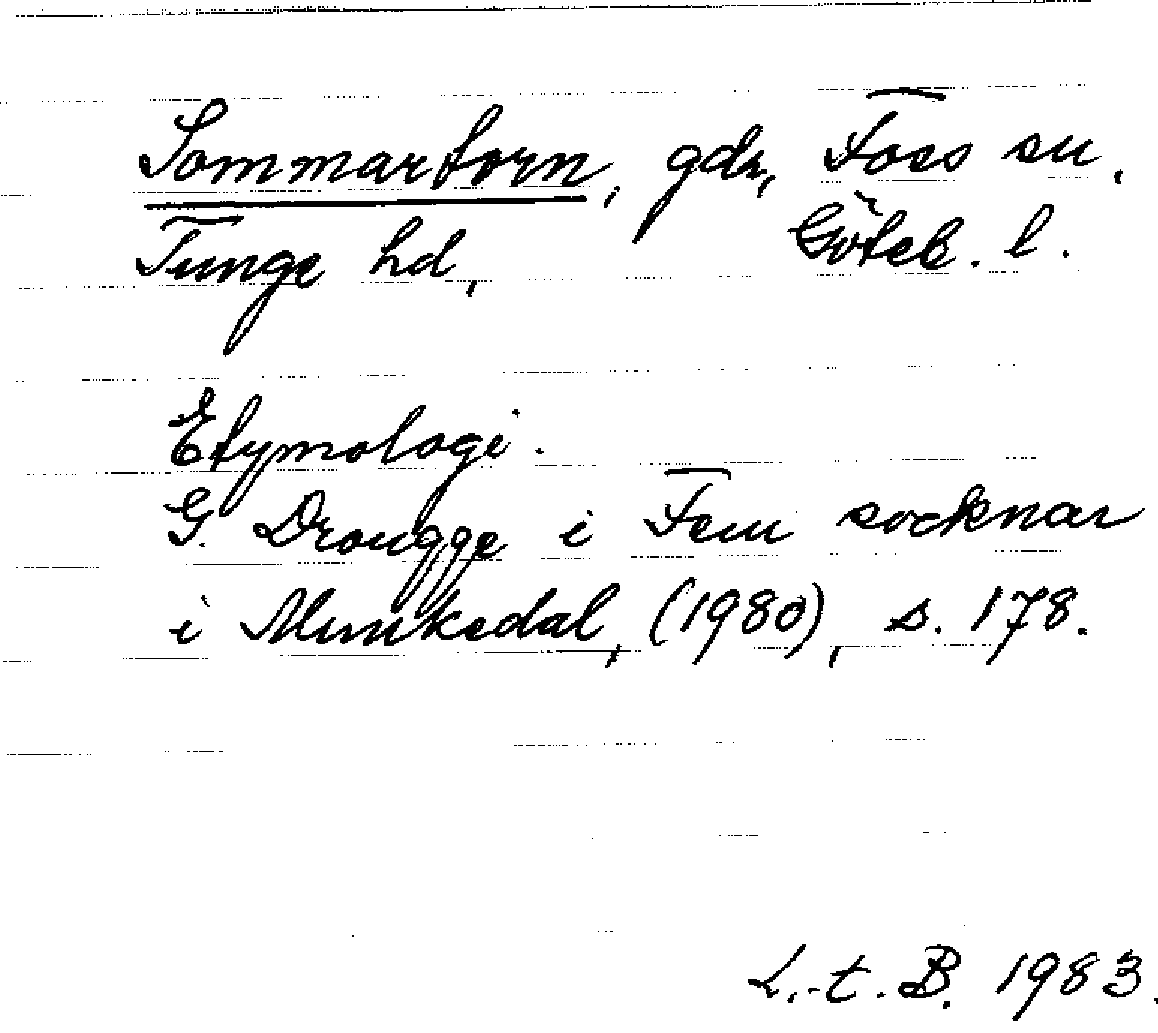 Sommartorn, gdr, Foss sn,
Tunge hd, Göteb. l.
Etymologi.
G. Drougge i Fem socknar
i Munkedal, (1980), s. 178.
L.-t. B. 1983.